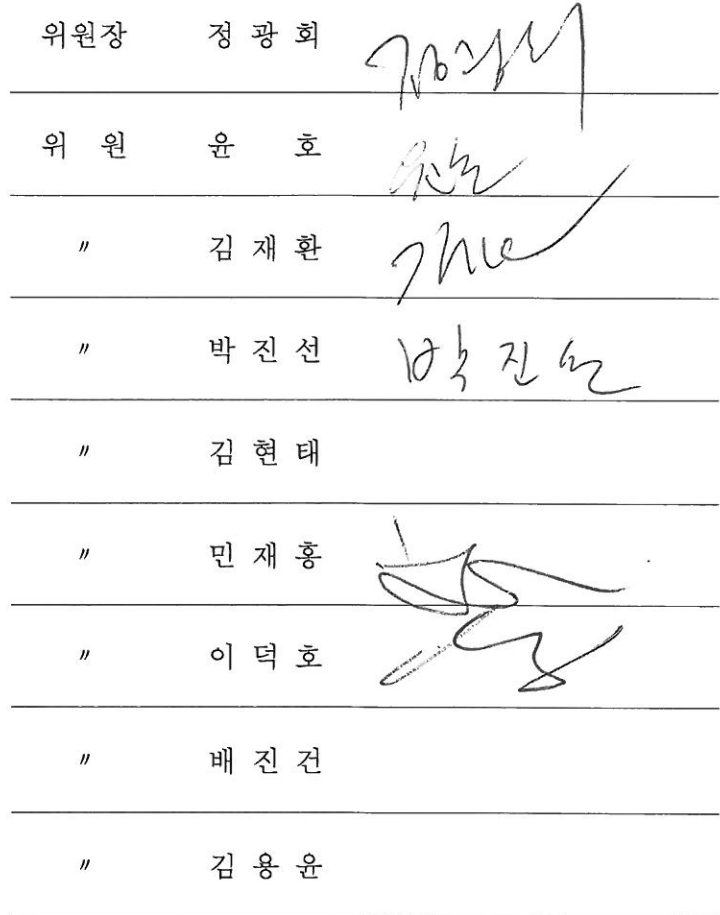 위원장 정 광 회 정광회
위 원 윤 호
〃 김 재 환
〃 박 진 선 박진선
〃 김 현 태
〃 민 재 홍
〃 이 덕 호
〃 배 진 건
〃 김 용 윤